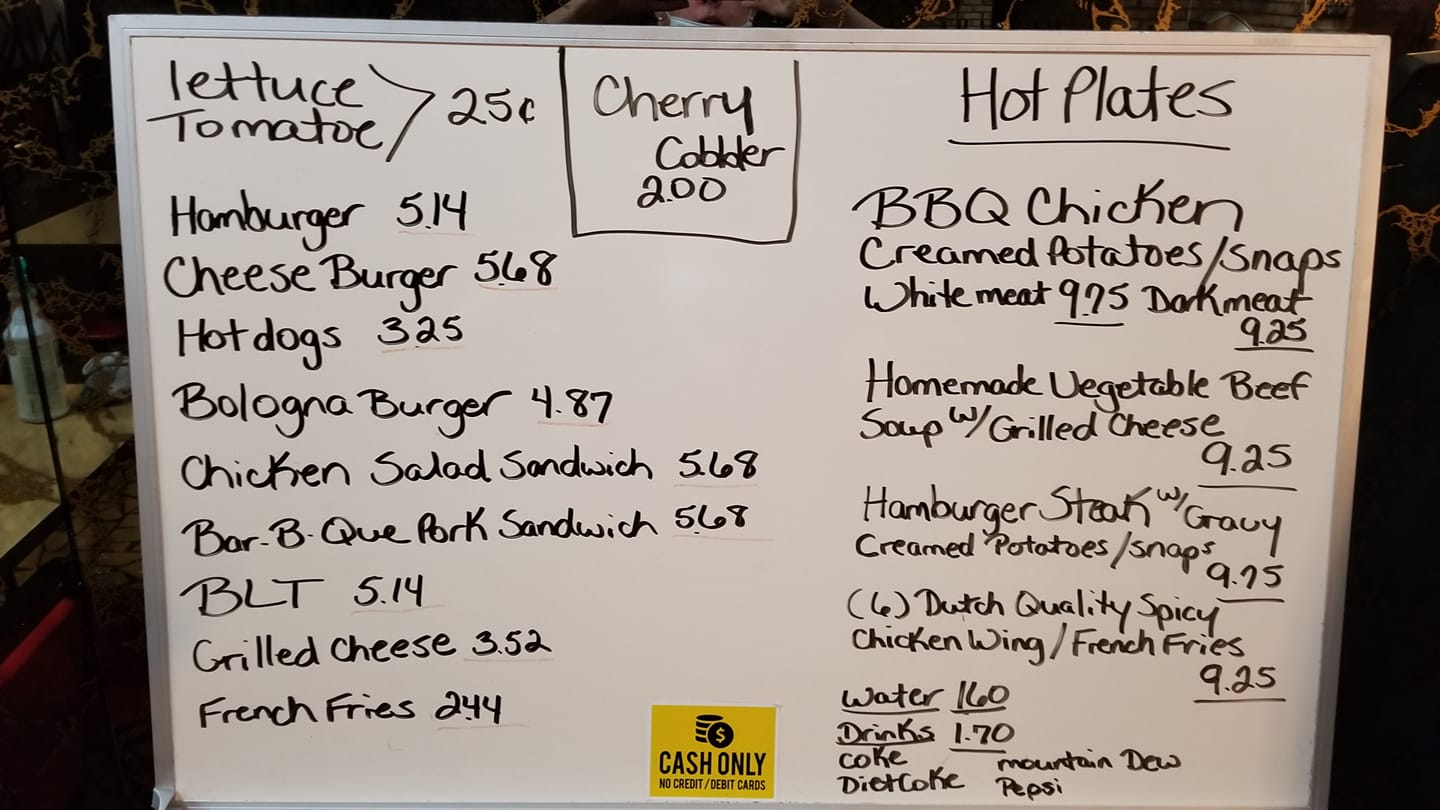 lettuce
Tomatoe > 25¢
Hamburger 5.14
Cheese Burger 5.68
Hotdogs 3.25
Bologna Burger 4.87
Chicken Salad Sandwich 5.68
Bar-B-Que Pork Sandwich 5.68
BLT 5.14
Grilled Cheese 3.52
French Fries 2.44
Cherry
Cobbler
2.00
CASH ONLY
NO CREDIT/DEBIT CARDS
Hot Plates
BBQ Chicken
Creamed Potatoes/Snaps
White meat 9.75 Dark meat
9.25
Homemade Vegetable Beef
Soup w/Grilled Cheese
9.25
Hamburger Steak w/Gravy
Creamed Potatoes/Snaps
9.75
(6) Dutch Quality Spicy
Chicken Wing/French Fries
9.25
Water 1.60
Drinks 1.70
Coke mountain Dew
Diet Coke Pepsi